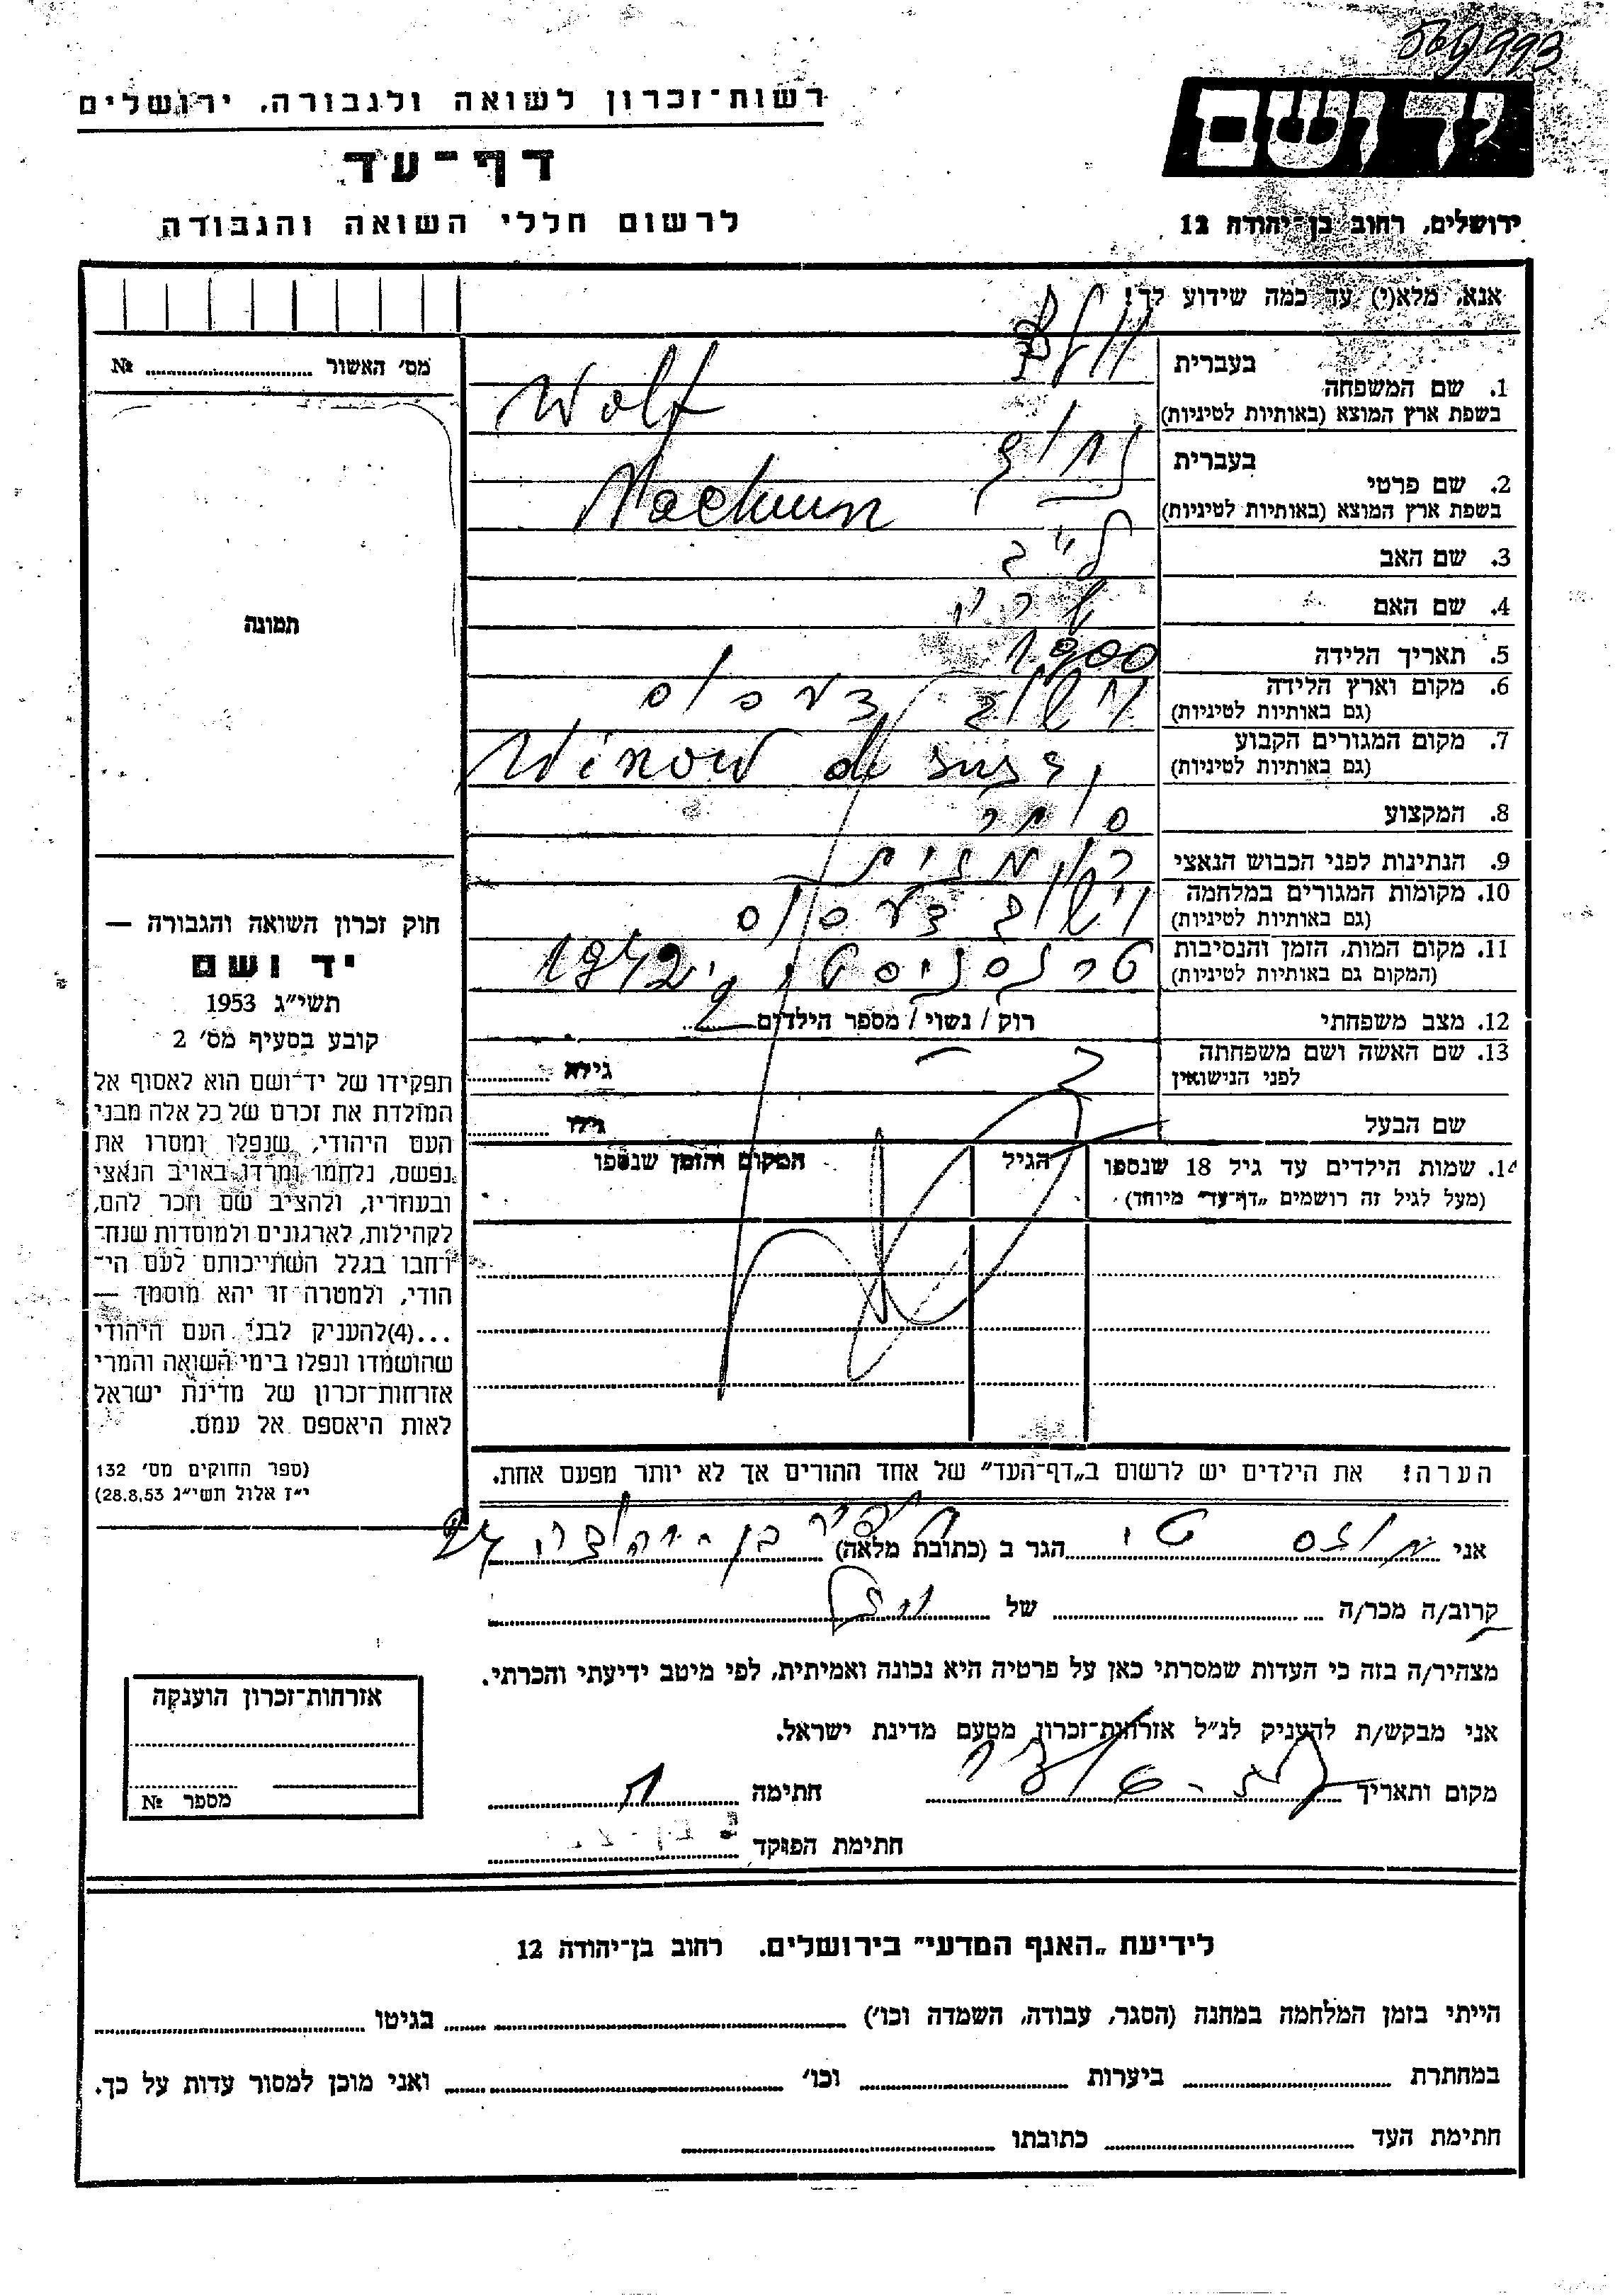 569993
יד ושם
רשות־זכרון לשואה ולגבורה, ירושלים
דף־עד
לרשום חללי השואה והגבורה
ירושלים, רחוב בן־יהודה 12
אנא, מלא(י) עד כמה שידוע לך!
מס׳ האשור № ........
1. שם המשפחה
בעברית וולף
בשפת ארץ המוצא (באותיות לטיניות) Wolf
2. שם פרטי
בעברית נחום
בשפת ארץ המוצא (באותיות לטיניות) Nachum
3. שם האב לייב
4. שם האם שרי
5. תאריך הלידה 1900
6. מקום וארץ הלידה
(גם באותיות לטיניות)
7. מקום המגורים הקבוע
(גם באותיות לטיניות) de sus
8. המקצוע סוחר
9. הנתינות לפני הכבוש הנאצי רומנית
10. מקומות המגורים במלחמה
(גם באותיות לטיניות)
11. מקום המות, הזמן והנסיבות
(המקום גם באותיות לטיניות) 1942
12. מצב משפחתי רוק / נשוי / מספר הילדים
13. שם האשה ושם משפחתה
לפני הנישואין
גילא ........
שם הבעל גילו ........
14. שמות הילדים עד גיל 18 שנספו
(מעל לגיל זה רושמים „דף־עד" מיוחד)
הגיל
המקום והזמן שנספו
תמונה
חוק זכרון השואה והגבורה —
יד ושם
תשי״ג 1953
קובע בסעיף מס׳ 2
תפקידו של יד־ושם הוא לאסוף אל
המולדת את זכרם של כל אלה מבני
העם היהודי, שנפלו ומסרו את
נפשם, נלחמו ומרדו באויב הנאצי
ובעוזריו, ולהציב שם וזכר להם,
לקהילות, לארגונים ולמוסדות שנח־
רחבו בגלל השתייכותם לעם הי־
הודי, ולמטרה זו יהא מוסמך —
...(4)להעניק לבני העם היהודי
שהושמדו ונפלו בימי השואה והמרי
אזרחות־זכרון של מדינת ישראל
לאות היאספם אל עמם.
(ספר החוקים מס׳ 132
י״ז אלול תשי״ג 28.8.53)
הערה! את הילדים יש לרשום ב„דף־העד" של אחד ההורים אך לא יותר מפעם אחת.
אני ........ הגר ב (כתובת מלאה) בן־יהודה
קרוב/ה מכר/ה ........ של
מצהיר/ה בזה כי העדות שמסרתי כאן על פרטיה היא נכונה ואמיתית, לפי מיטב ידיעתי והכרתי.
אני מבקש/ת להעניק לנ״ל אזרחות־זכרון מטעם מדינת ישראל.
מקום ותאריך ........ חתימה ........
חתימת הפוקד ........
אזרחות־זכרון הוענקה
מספר №
לידיעת „האגף המדעי" בירושלים. רחוב בן־יהודה 12
הייתי בזמן המלחמה במחנה (הסגר, עבודה, השמדה וכו׳) ........ בגיטו ........
במחתרת ........ ביערות ........ וכו׳ ........ ואני מוכן למסור עדות על כך.
חתימת העד ........ כתובתו ........